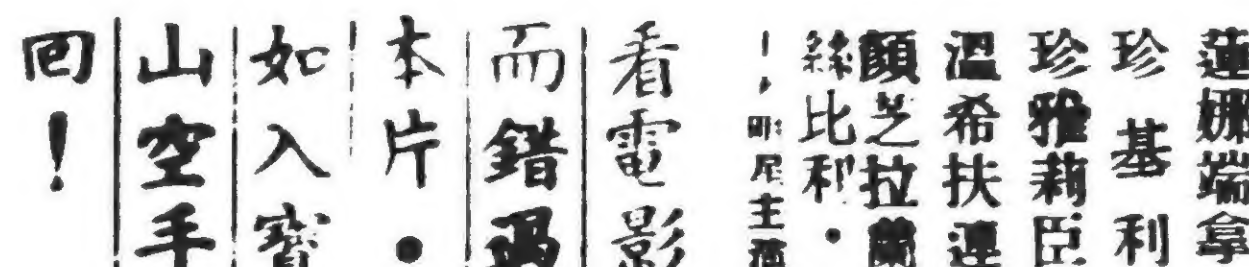 蓮娜端拿
珍基利
珍雅莉臣
溫希扶連
顏芝拉蘭
絲比利・
尼主演
看電影
而錯過
本片・
如入寶
山空手
回！